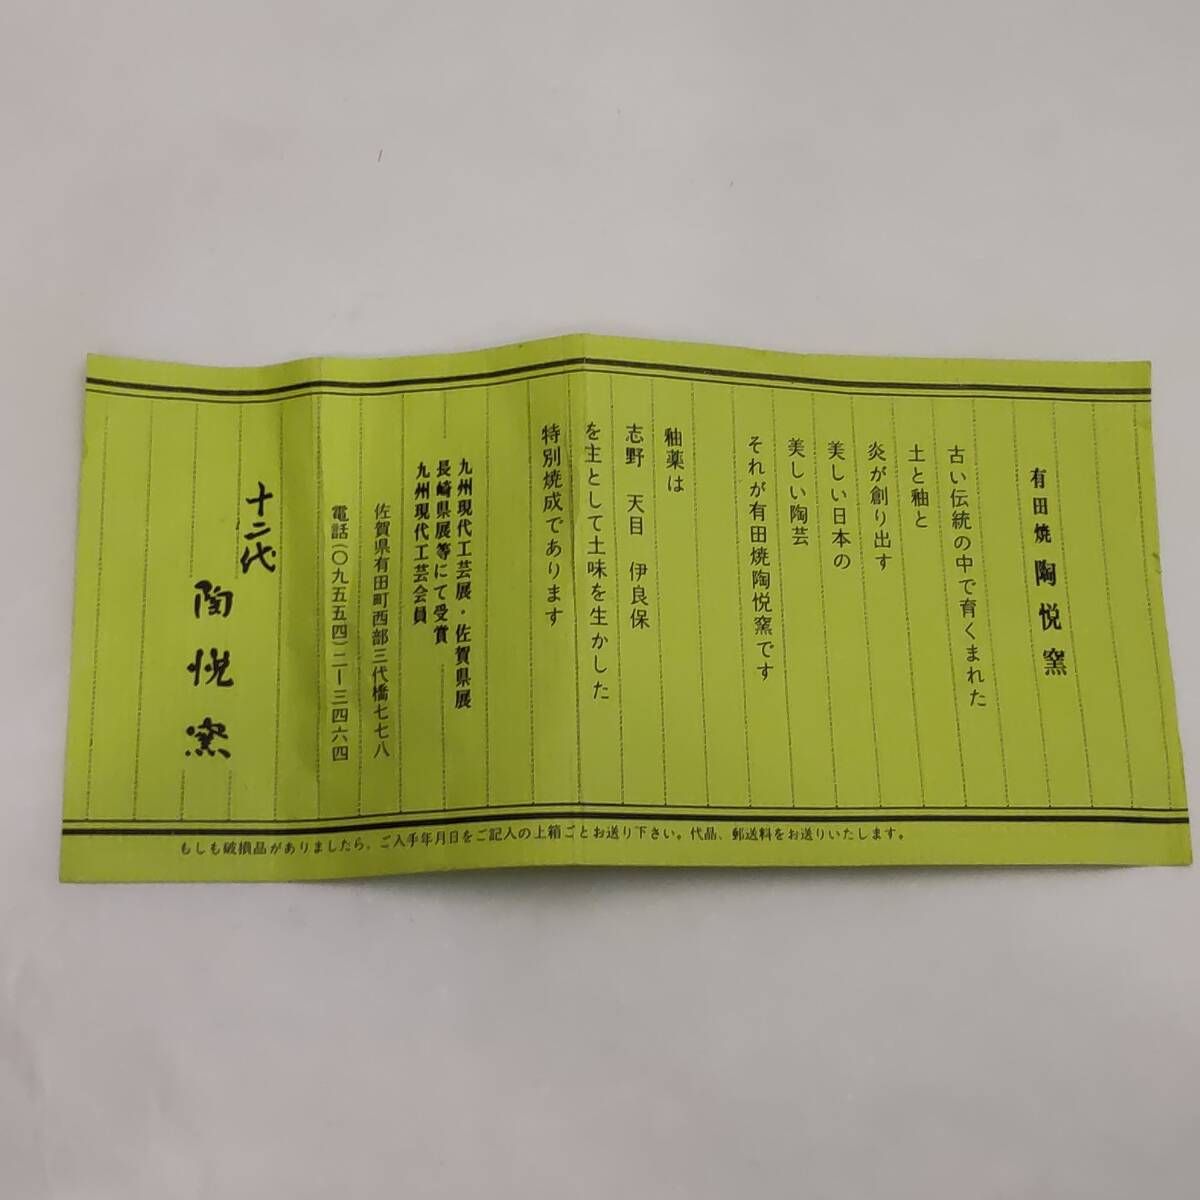 有田焼 陶悦窯
古い伝統の中で育くまれた
土と釉と
炎が創り出す
美しい日本の
美しい陶芸
それが有田焼陶悦窯です
釉薬は
志野 天目 伊良保
を主として土味を生かした
特別焼成であります
九州現代工芸展・佐賀県展
長崎県展等にて受賞
九州現代工芸会員
佐賀県有田町西部三代橋七七八
電話(〇九五五四)二ー三四六四
十二代
陶悦窯
もしも破損品がありましたら、ご入手年月日をご記入の上箱ごとお送り下さい。代品、郵送料をお送りいたします。